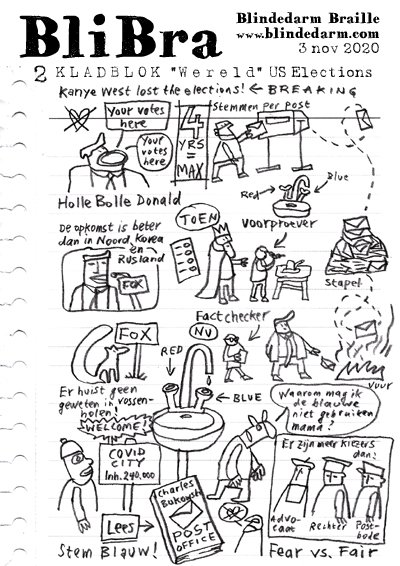 BliBra
Blindedarm Braille
www.blindedarm.com
3 nov 2020
2 KLADBLOK "Wereld" US Elections
Kanye West lost the elections! ← BREAKING
Your votes
here
Your
votes
here
4
YRS
=
MAX
Stemmen per post
Holle Bolle Donald
Red→
Blue
Voorproever
De opkomst is beter
dan in Noord Korea
en
Rusland
FOX
TOEN
Stapel
FOX
RED
NU
Factchecker
← BLUE
Vuur
Er huist geen
geweten in vossen-
holen!
WELCOME!
COVID
CITY
Inh. 240.000
Waarom mag ik
de blauwe
niet gebruiken
mama?
Er zijn meer kiezers
dan:
Advo-
caat
Rechter
Post-
bode
Lees →
Charles
Bukowski
POST
OFFICE
Stem Blauw!
Fear vs. Fair